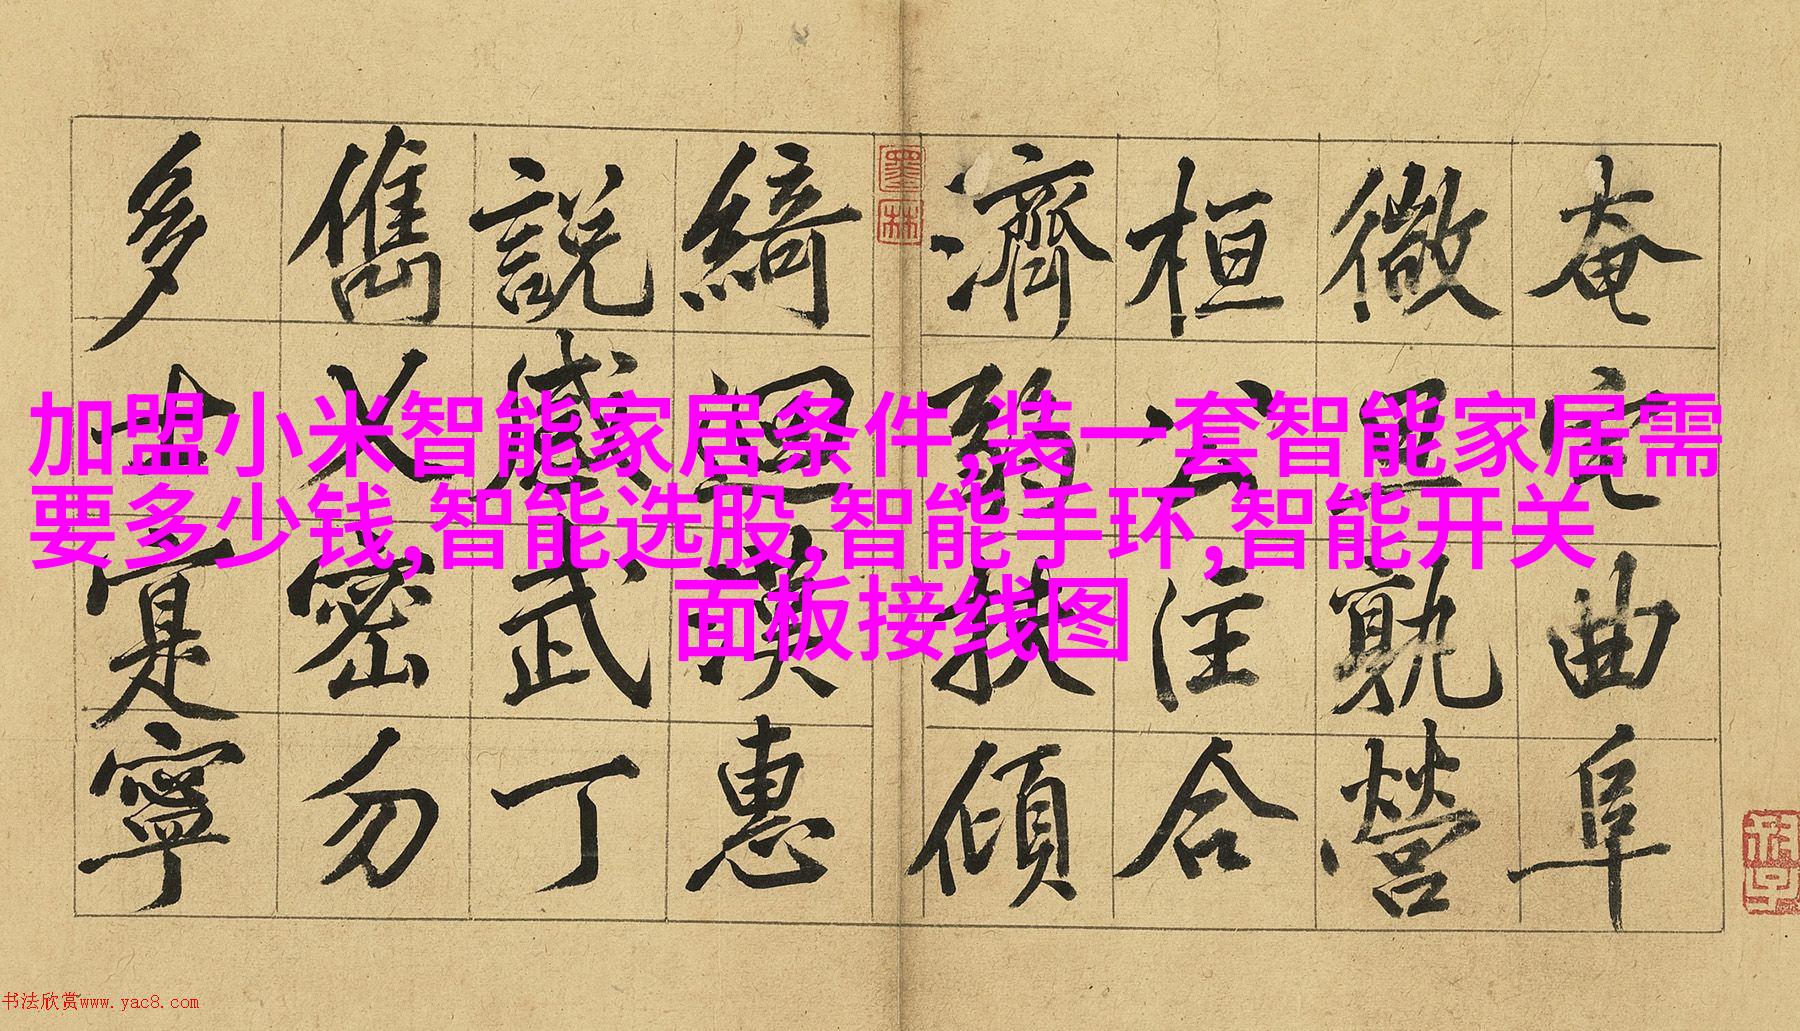 奄宅曲阜
微旦孰營
桓公匡合
濟弱扶傾
綺迴漢惠
說感武丁
儁乂密勿
多士寔寧
墨林
加盟小米智能家居条件,装一套智能家居需
要多少钱,智能选股,智能手环,智能开关
面板接线图
书法欣赏www.yac8.com